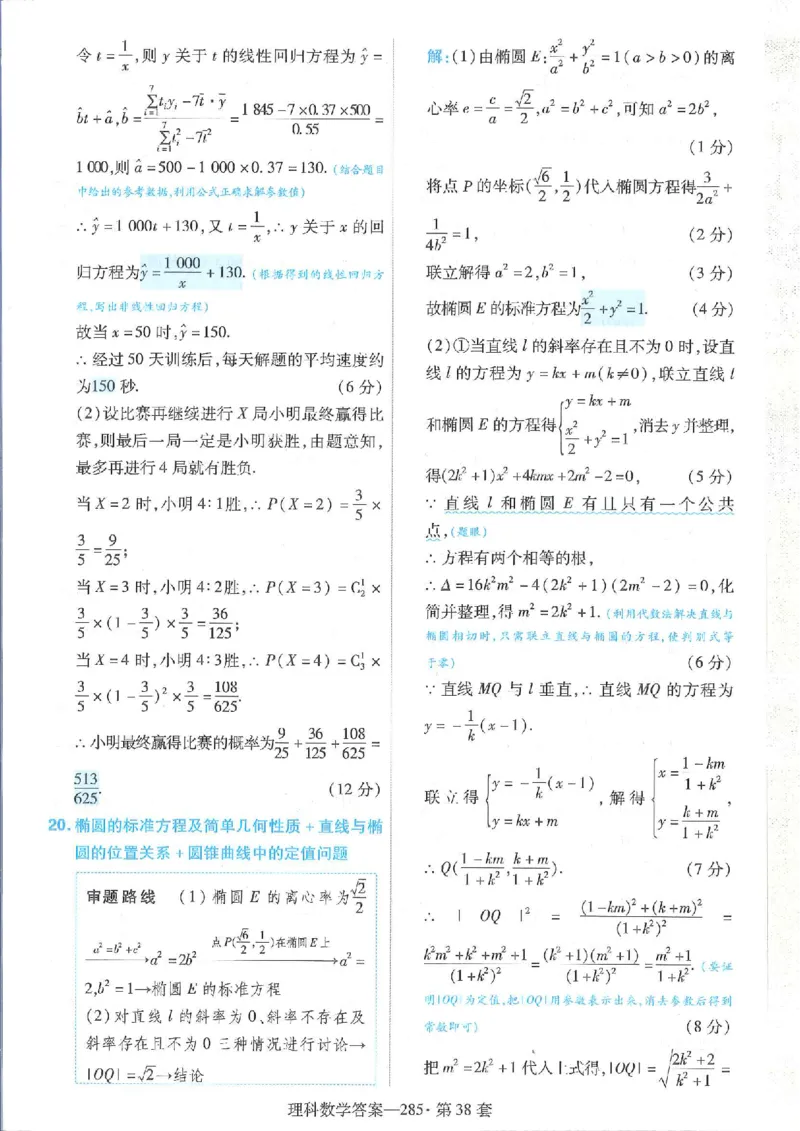 令 t = 1/x ,则 y 关于 t 的线性回归方程为 ŷ =
b̂t + â, b̂ = (∑_{i=1}^{7} t_i y_i − 7 t̄ · ȳ)/(∑_{i=1}^{7} t_i² − 7 t̄²) = (1 845 − 7×0.37×500)/0.55 =
1 000,则 â = 500 − 1 000 × 0.37 = 130. (结合题目
中给出的参考数据,利用公式正确求解参数值)
∴ ŷ = 1 000t + 130,又 t = 1/x ,∴ y 关于 x 的回
归方程为 ŷ = 1 000/x + 130. (根据得到的线性回归方
程,写出非线性回归方程)
故当 x = 50 时, ŷ = 150.
∴ 经过 50 天训练后,每天解题的平均速度约
为150 秒. (6 分)
(2)设比赛再继续进行 X 局小明最终赢得比
赛,则最后一局一定是小明获胜,由题意知,
最多再进行 4 局就有胜负.
当 X = 2 时,小明 4∶1胜,∴ P(X = 2) = 3/5 ×
3/5 = 9/25;
当 X = 3 时,小明 4∶2胜,∴ P(X = 3) = C₂¹ ×
3/5 × (1 − 3/5) × 3/5 = 36/125;
当 X = 4 时,小明 4∶3胜,∴ P(X = 4) = C₃¹ ×
3/5 × (1 − 3/5)² × 3/5 = 108/625.
∴ 小明最终赢得比赛的概率为 9/25 + 36/125 + 108/625 =
513/625. (12 分)
20. 椭圆的标准方程及简单几何性质 + 直线与椭
圆的位置关系 + 圆锥曲线中的定值问题
审题路线 (1) 椭圆 E 的离心率为 √2/2
a²=b²+c² → a² = 2b² 点P(√6/2, 1/2)在椭圆E上 → a² =
2, b² = 1→椭圆 E 的标准方程
(2) 对直线 l 的斜率为 0、斜率不存在及
斜率存在且不为 0 三种情况进行讨论→
|OQ| = √2→结论
解:(1)由椭圆 E: x²/a² + y²/b² = 1(a > b > 0)的离
心率 e = c/a = √2/2, a² = b² + c²,可知 a² = 2b²,
(1 分)
将点 P 的坐标(√6/2, 1/2)代入椭圆方程得 3/(2a²) +
1/(4b²) = 1, (2 分)
联立解得 a² = 2, b² = 1, (3 分)
故椭圆 E 的标准方程为 x²/2 + y² = 1. (4 分)
(2)①当直线 l 的斜率存在且不为 0 时,设直
线 l 的方程为 y = kx + m(k ≠ 0),联立直线 l
和椭圆 E 的方程得 { y = kx + m, x²/2 + y² = 1 ,消去 y 并整理,
得(2k² + 1)x² + 4kmx + 2m² − 2 = 0, (5 分)
∵ 直线 l 和椭圆 E 有且只有一个公共
点,(题眼)
∴ 方程有两个相等的根,
∴ Δ = 16k²m² − 4(2k² + 1)(2m² − 2) = 0,化
简并整理,得 m² = 2k² + 1. (利用代数法解决直线与
椭圆相切时,只需联立直线与椭圆的方程,使判别式等
于零) (6 分)
∵ 直线 MQ 与 l 垂直,∴ 直线 MQ 的方程为
y = − 1/k (x − 1).
联立得 { y = − 1/k (x − 1), y = kx + m ,解得 { x = (1 − km)/(1 + k²), y = (k + m)/(1 + k²) ,
∴ Q((1 − km)/(1 + k²), (k + m)/(1 + k²)). (7 分)
∴ | OQ |² = ((1 − km)² + (k + m)²)/(1 + k²)² =
(k²m² + k² + m² + 1)/(1 + k²)² = (k² + 1)(m² + 1)/(1 + k²)² = (m² + 1)/(1 + k²). (要证
明|OQ|为定值,把|OQ|用参数表示出来,消去参数后得到
常数即可) (8 分)
把 m² = 2k² + 1 代入上式得, |OQ| = √((2k² + 2)/(k² + 1)) =
理科数学答案—285 · 第 38 套